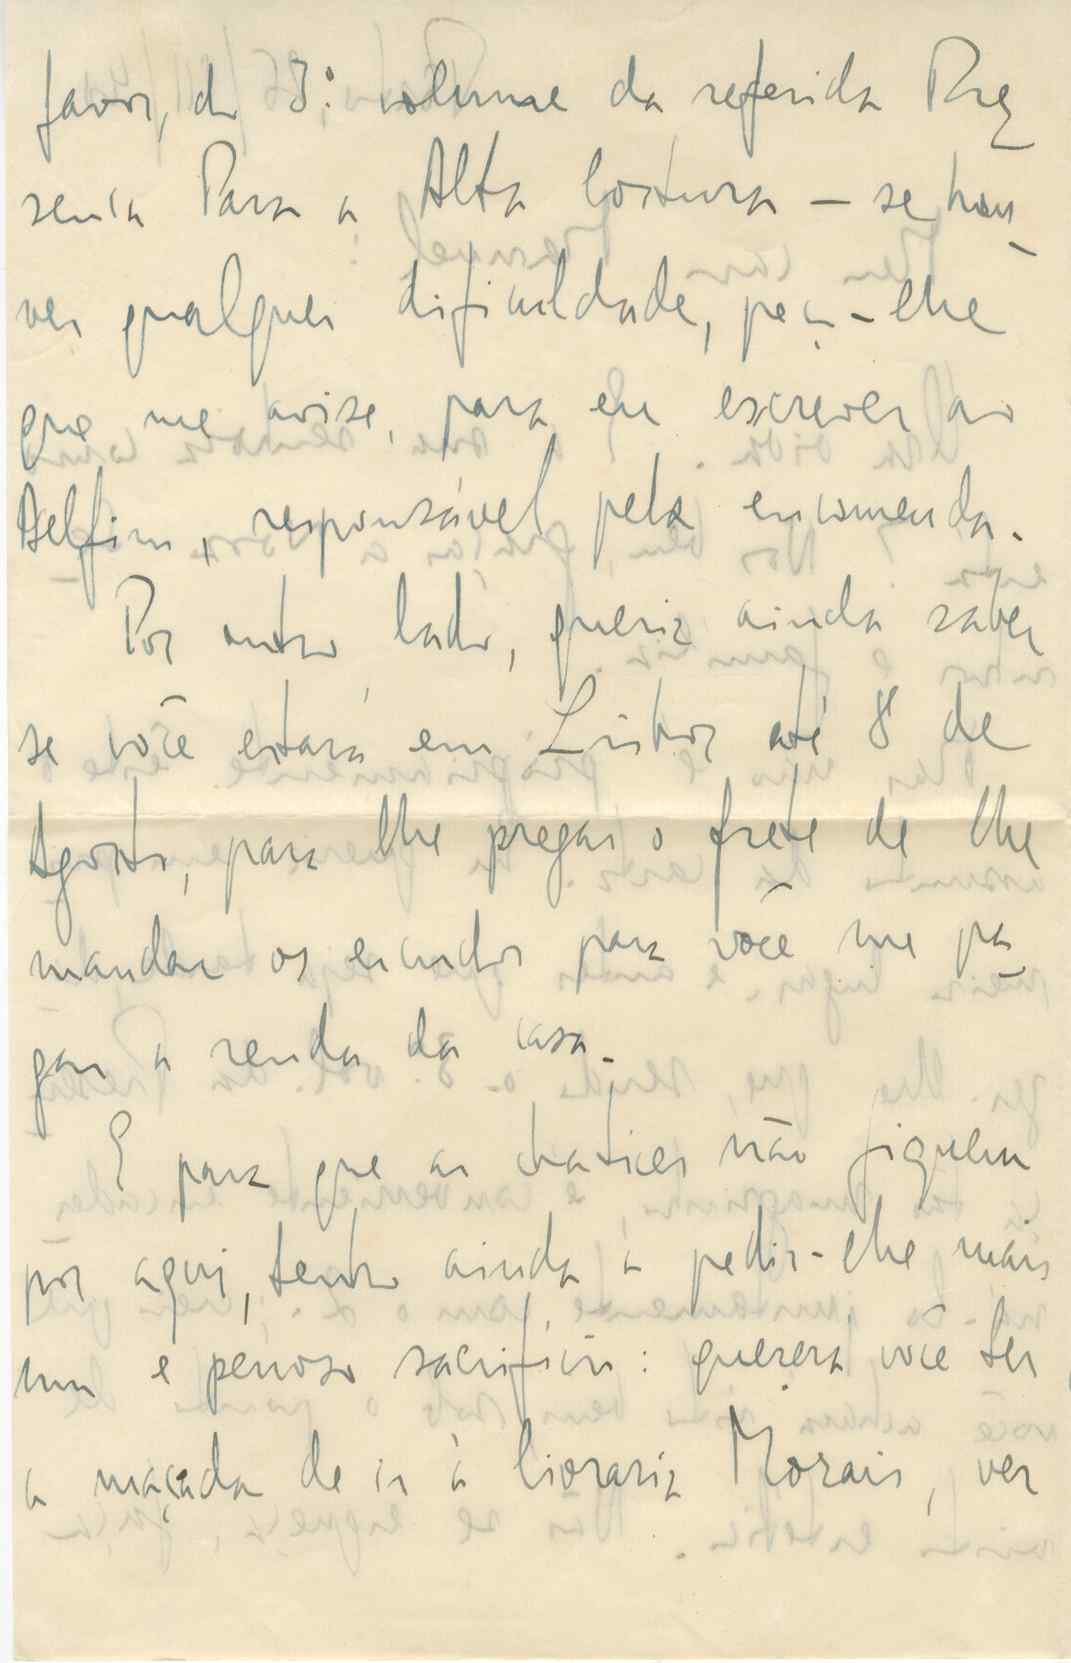 favor, do 3º volume da referida Pre
sença Para a Alta Costura – se hou
ver qualquer dificuldade, peço-lhe
que me avise, para eu escrever ao
Delfim, responsável pela encomenda.
Por outro lado, queria ainda saber
se você estará em Lisboa até 8 de
Agosto, para lhe pregar o frete de lhe
mandar os escudos para você me pa
gar a renda da casa.
E para que as chatices não fiquem
por aqui, tenho ainda a pedir-lhe mais
um e penoso sacrifício: quererá você ter
a maçada de ir à livraria Morais, ver